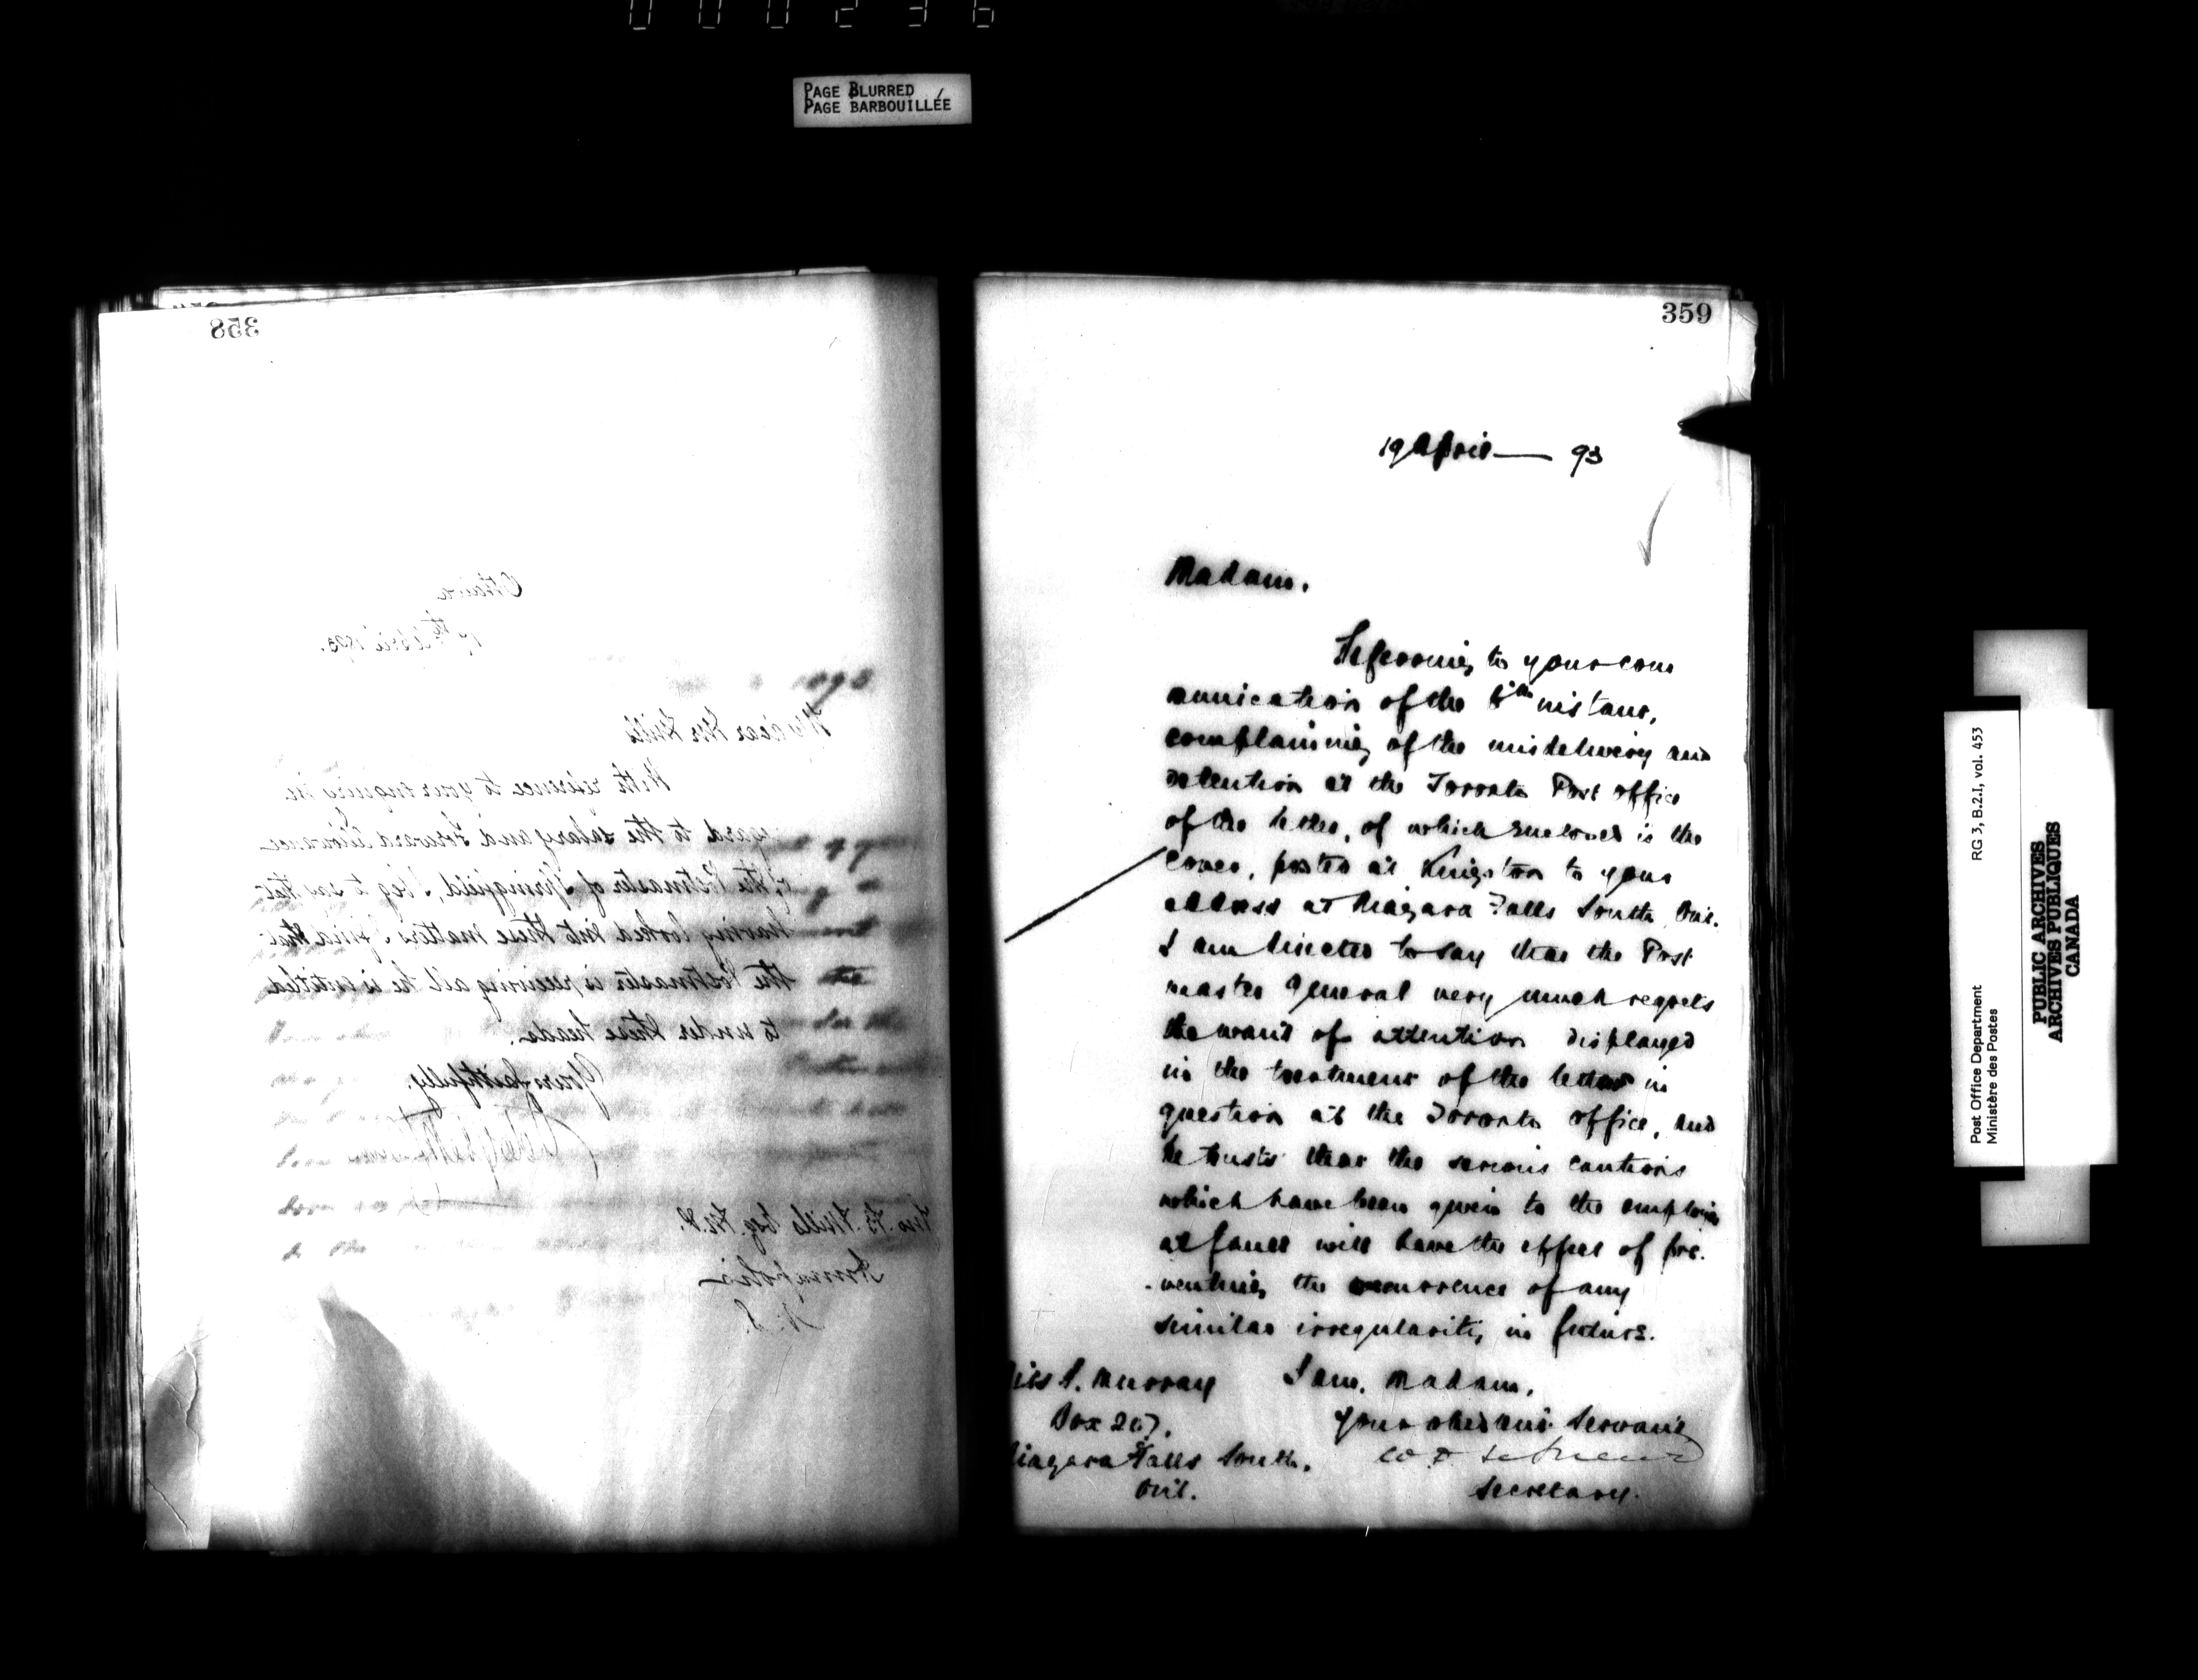 000236
PAGE BLURRED
PAGE BARBOUILLÉE
358
Ottawa
April 1893.
My dear Mr Mills
With reference to your enquiry in
regard to the salary and Forward Allowance
of the Postmaster of Springfield, I beg to say that
having looked into these matters I find that
the Postmaster is receiving all he is entitled
to under these heads.
Yours faithfully,
Jno. B. Mills Esq. M.P.
Annapolis
N.S.
359
19 April — 93
Madam.
Referring to your com
munication of the instant,
complaining of the misdelivery and
detention at the Toronto Post office
of the letter, of which enclosed is the
cover, posted at Kingston to your
address at Niagara Falls South, Ont.
I am directed to say that the Post
master General very much regrets
the want of attention displayed
in the treatment of the letter in
question at the Toronto office, and
he trusts that the serious cautions
which have been given to the employés
at fault will have the effect of pre-
-venting the recurrence of any
similar irregularity in future.
I am, Madam,
Your obedient Servant
Secretary.
Miss S. Murray
Box 207.
Niagara Falls South.
Ont.
Post Office Department
Ministère des Postes
RG 3, B.2.I, vol. 453
PUBLIC ARCHIVES
ARCHIVES PUBLIQUES
CANADA